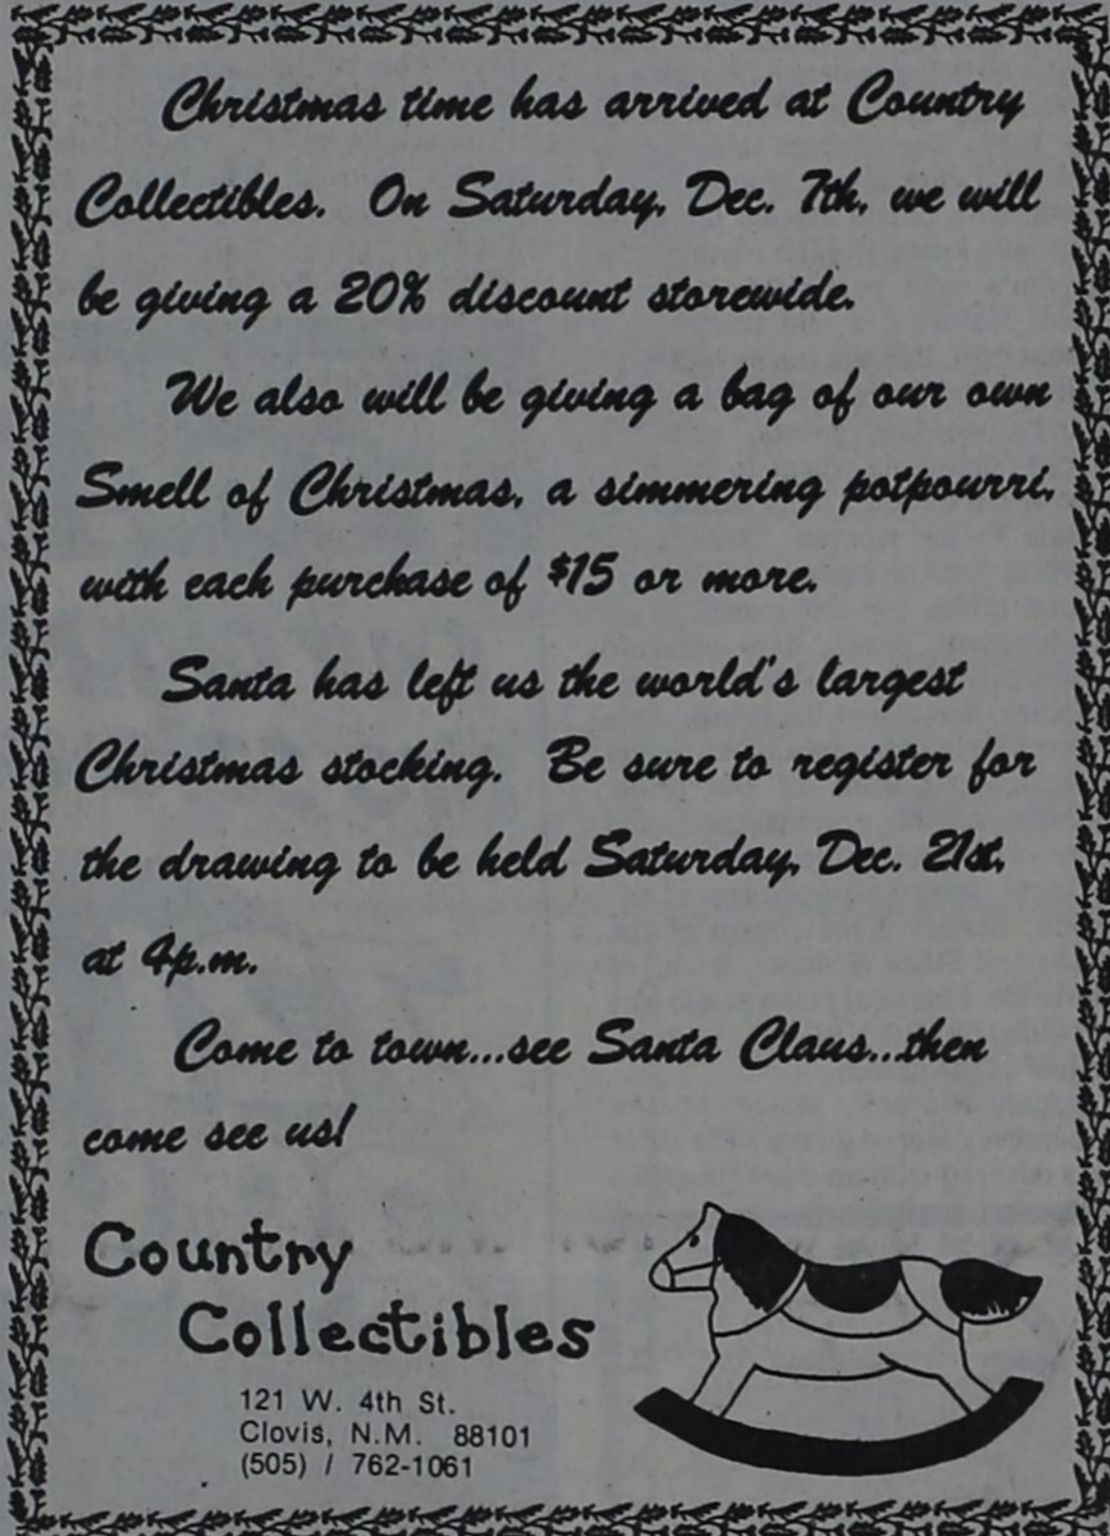 Christmas time has arrived at Country
Collectibles. On Saturday, Dec. 7th, we will
be giving a 20% discount storewide.
We also will be giving a bag of our own
Smell of Christmas, a simmering potpourri,
with each purchase of $15 or more.
Santa has left us the world's largest
Christmas stocking. Be sure to register for
the drawing to be held Saturday, Dec. 21st,
at 4p.m.
Come to town...see Santa Claus...then
come see us!
Country
Collectibles
121 W. 4th St.
Clovis, N.M. 88101
(505) / 762-1061